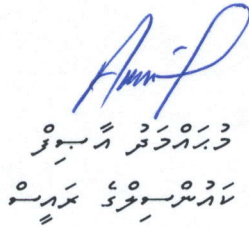 މުޙައްމަދު އާޞިފް
ކައުންސިލްގެ ރައީސް